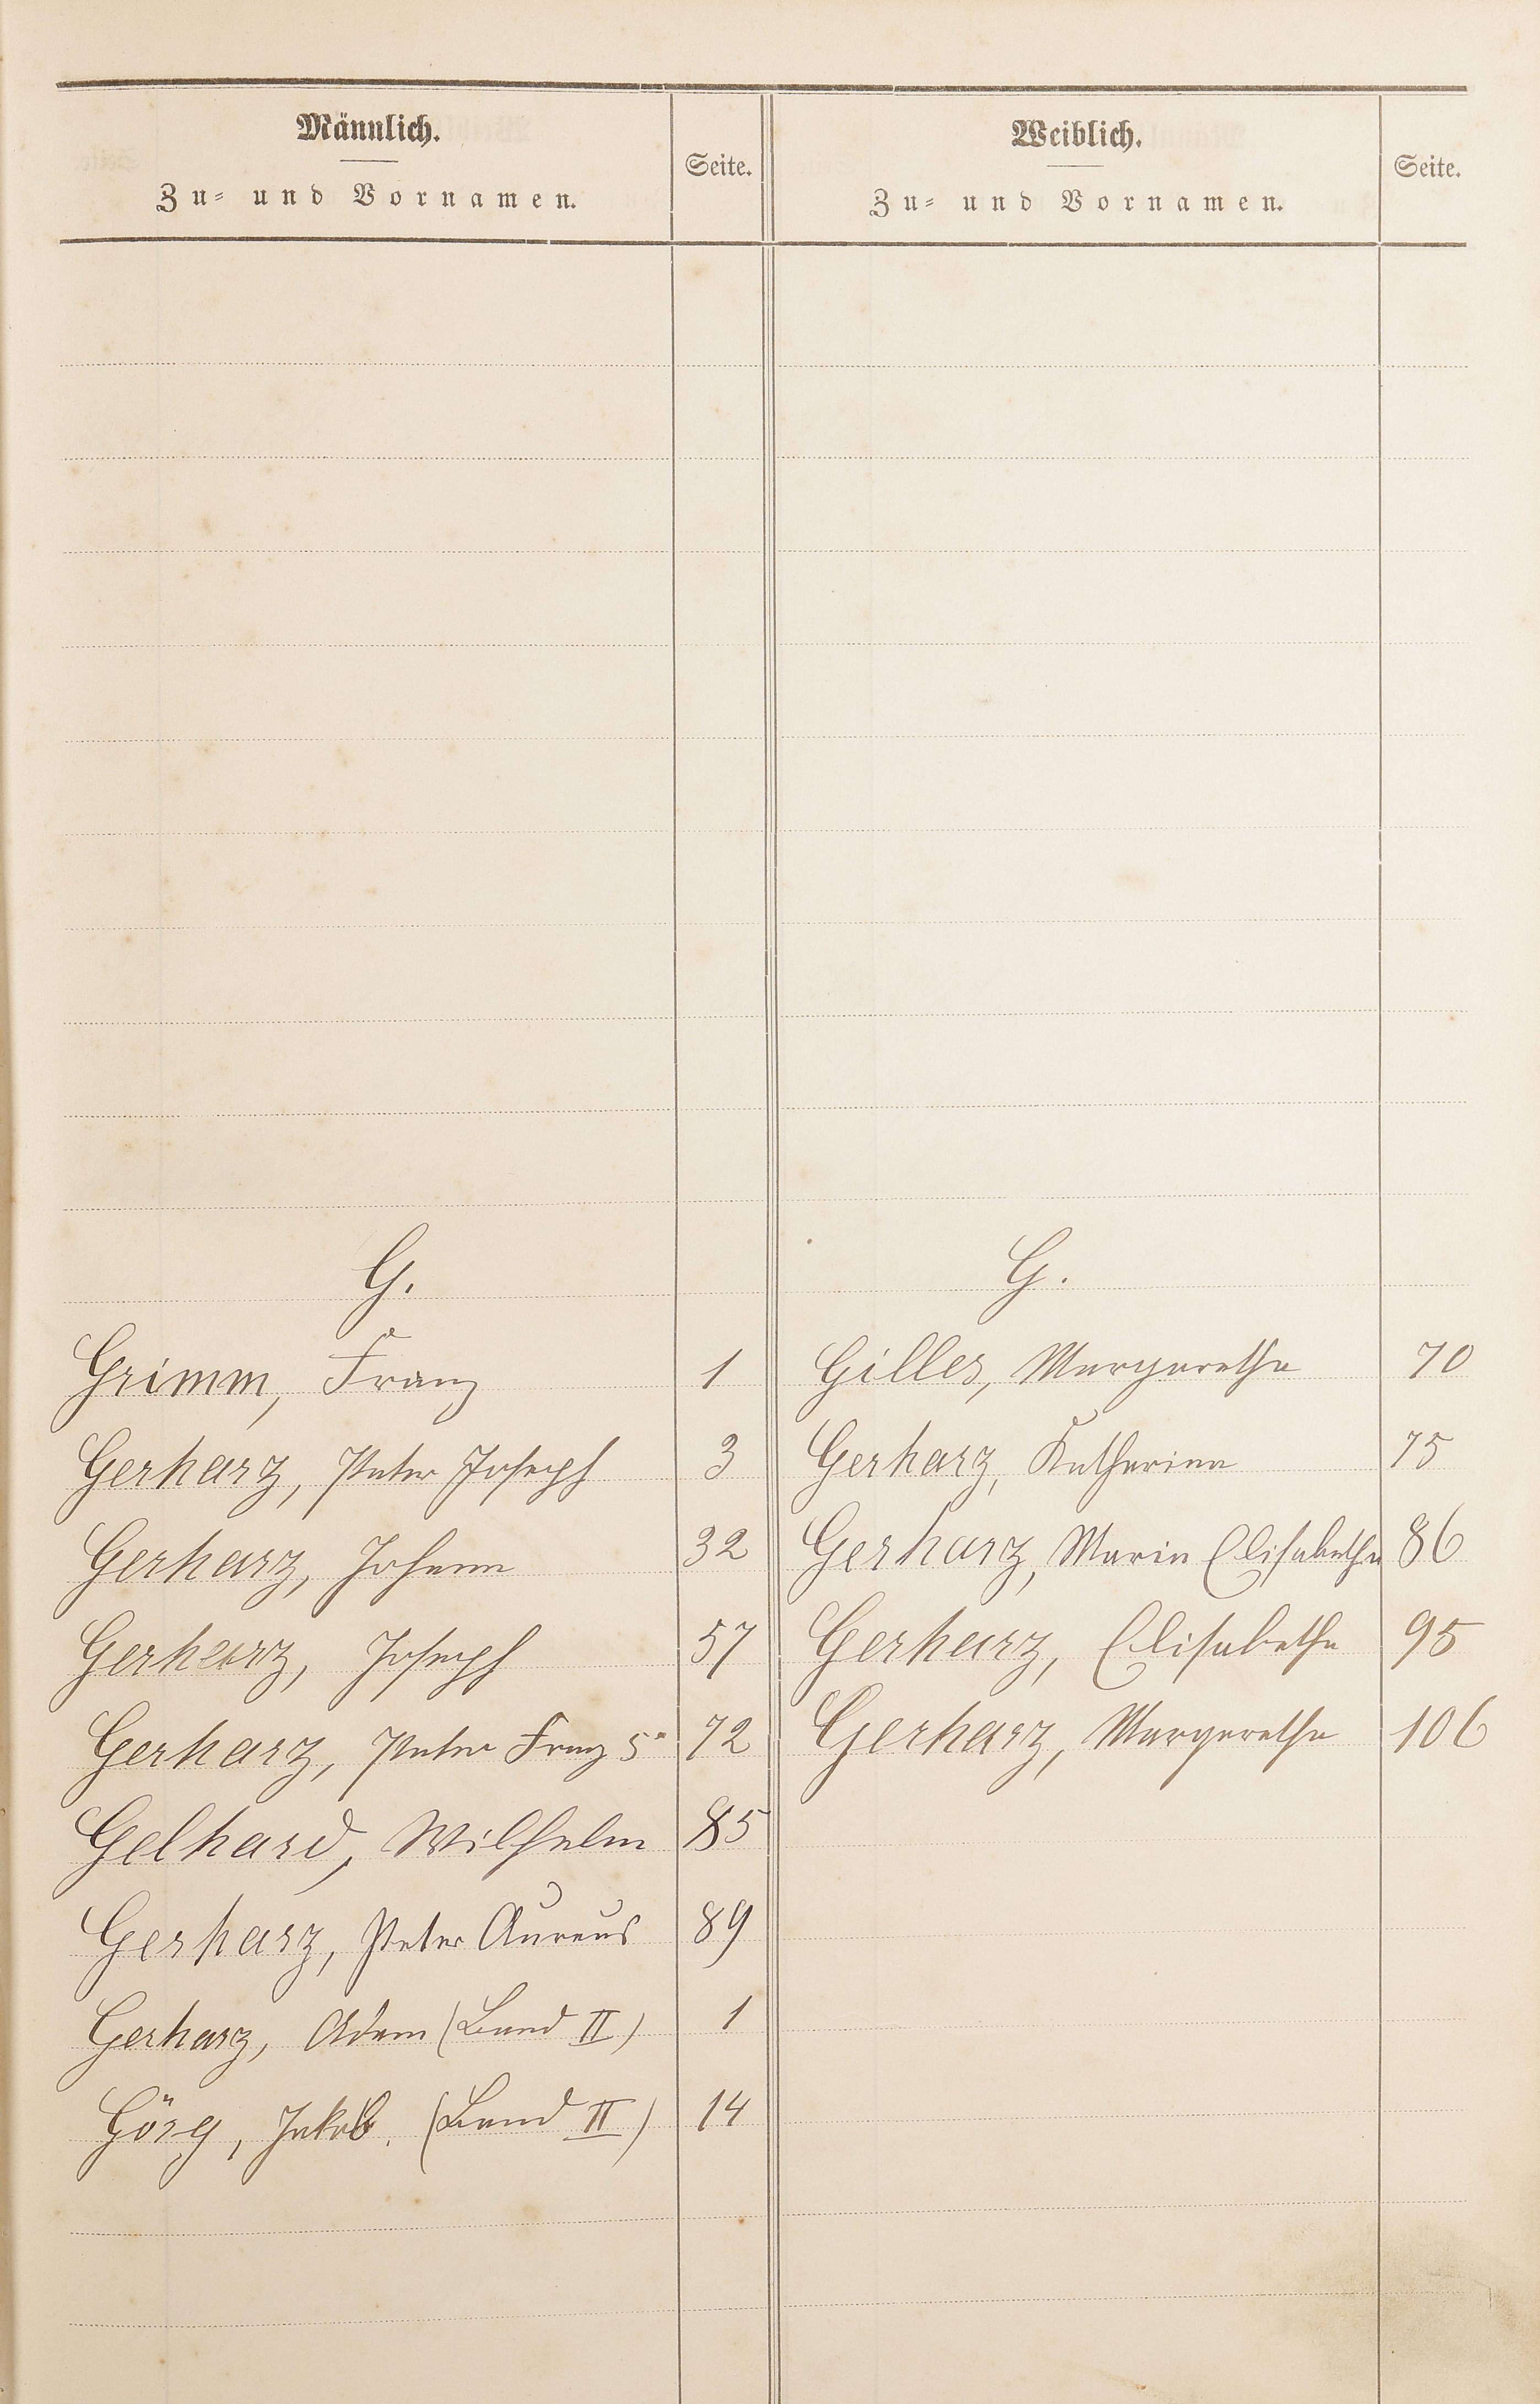 Männlich.
Zu- und Vornamen.
Seite.
Weiblich.
Zu- und Vornamen.
Seite.
G.
Grimm, Franz 1
Gerharz, Peter Joseph 3
Gerharz, Johann 32
Gerharz, Joseph 57
Gerharz, Peter Franz 5r 72
Gelhard, Wilhelm 85
Gerharz, Peter Aureus 89
Gerharz, Adam (Band II) 1
Görg, Jakob. (Band II) 14
G.
Gilles, Margaretha 70
Gerharz, Katharina 75
Gerharz, Maria Elisabetha 86
Gerharz, Elisabetha 95
Gerharz, Margaretha 106